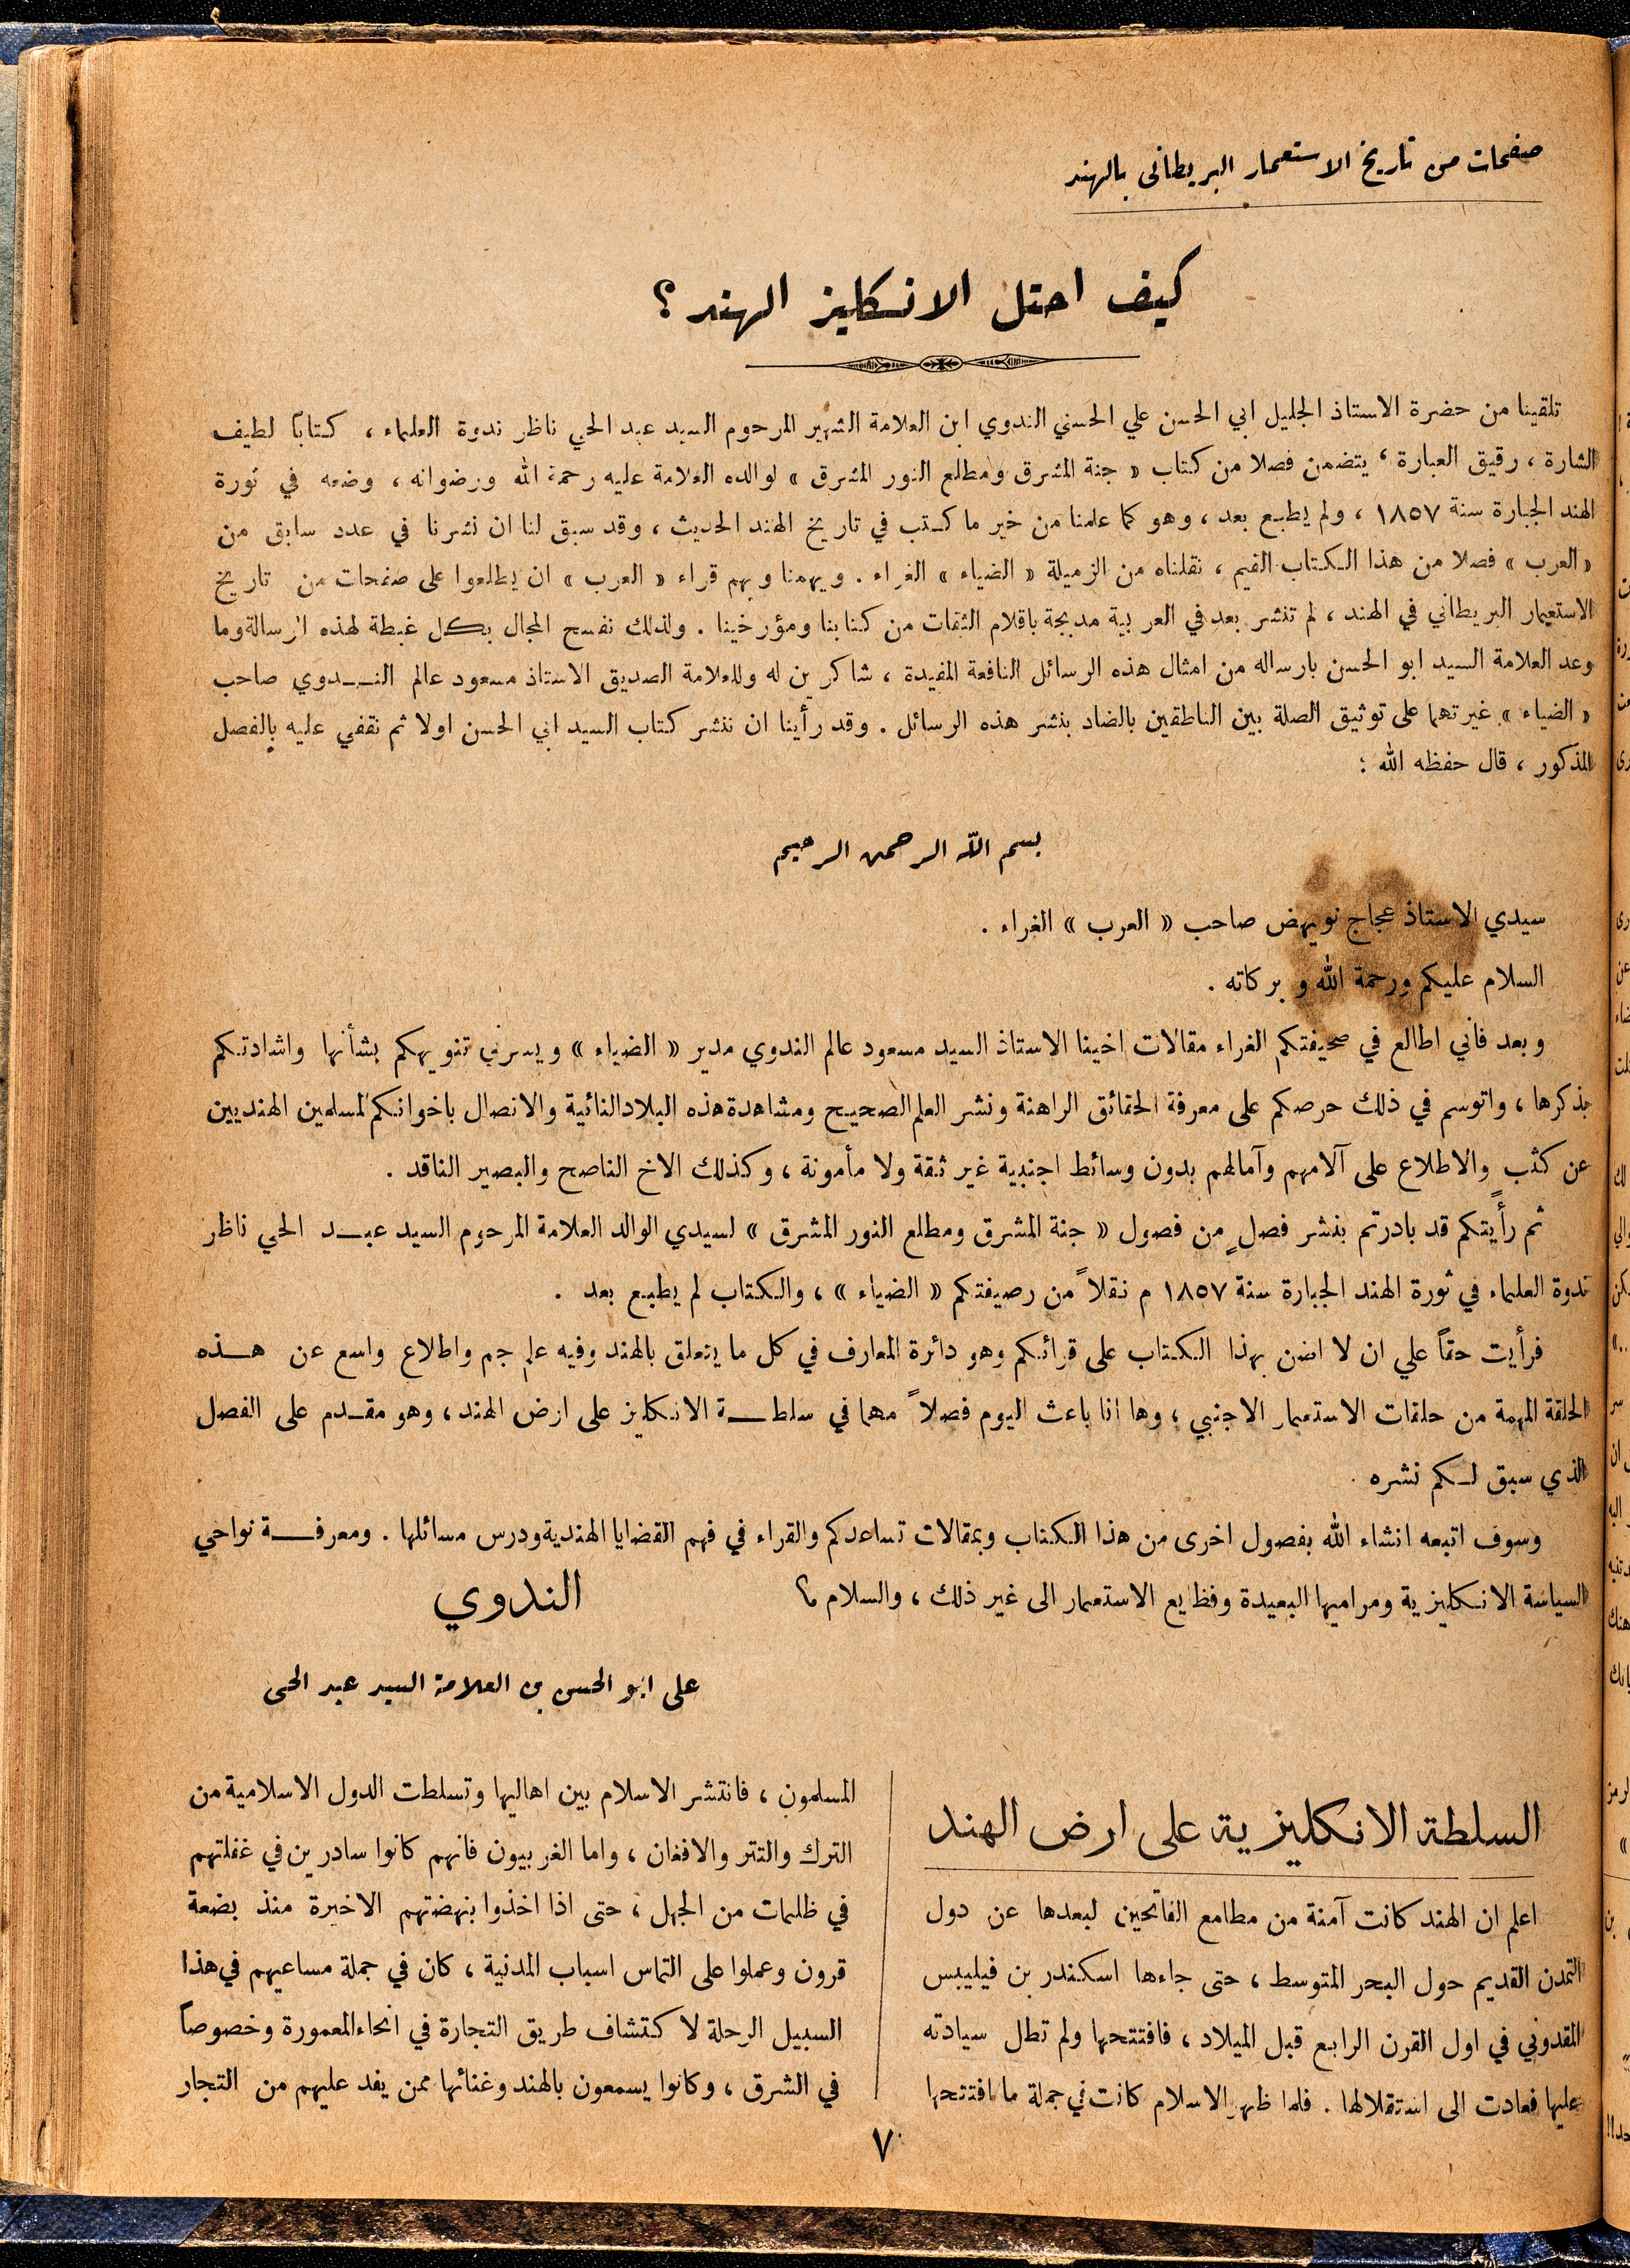 صفحات من تاريخ الاستعمار البريطانى بالهند
كيف احتل الانكليز الهند ؟
تلقينا من حضرة الاستاذ الجليل ابي الحسن علي الحسني الندوي ابن العلامة الشهير المرحوم السيد عبد الحي ناظر ندوة العلماء ، كتاباً لطيف
الشارة ، رقيق العبارة ، يتضمن فصلا من كتاب « جنة المشرق ومطلع النور المشرق » لوالده العلامة عليه رحمة الله ورضوانه ، وضعه في ثورة
الهند الجبارة سنة ١٨٥٧ ، ولم يطبع بعد ، وهو كما علمنا من خير ما كتب في تاريخ الهند الحديث ، وقد سبق لنا ان نشرنا في عدد سابق من
« العرب » فصلا من هذا الكتاب القيم ، نقلناه من الزميلة « الضياء » الغراء . ويهمنا ويهم قراء « العرب » ان يطلعوا على صفحات من تاريخ
الاستعمار البريطاني في الهند ، لم تنشر بعد في العربية مدبجة باقلام الثقات من كتابنا ومؤرخينا . ولذلك نفسح المجال بكل غبطة لهذه الرسالة وما
وعد العلامة السيد ابو الحسن بارساله من امثال هذه الرسائل النافعة المفيدة ، شاكرين له وللعلامة الصديق الاستاذ مسعود عالم النــدوي صاحب
« الضياء » غيرتهما على توثيق الصلة بين الناطقين بالضاد بنشر هذه الرسائل . وقد رأينا ان ننشر كتاب السيد ابي الحسن اولا ثم نقفي عليه بالفصل
المذكور ، قال حفظه الله :
بسم الله الرحمن الرحيم
سيدي الاستاذ عجاج نويهض صاحب « العرب » الغراء .
السلام عليكم ورحمة الله وبركاته .
وبعد فأني اطالع في صحيفتكم الغراء مقالات اخينا الاستاذ السيد مسعود عالم الندوي مدير « الضياء » ويسرني تنويهكم بشأنها واشادتكم
بذكرها ، واتوسم في ذلك حرصكم على معرفة الحقائق الراهنة ونشر العلم الصحيح ومشاهدة هذه البلاد النائية والاتصال باخوانكم المسلمين الهنديين
عن كثب والاطلاع على آلامهم وآمالهم بدون وسائط اجنبية غير ثقة ولا مأمونة ، وكذلك الاخ الناصح والبصير الناقد .
ثم رأيتكم قد بادرتم بنشر فصلٍ من فصول « جنة المشرق ومطلع النور المشرق » لسيدي الوالد العلامة المرحوم السيد عبــد الحي ناظر
ندوة العلماء في ثورة الهند الجبارة سنة ١٨٥٧ م نقلاً من رصيفتكم « الضياء » ، والكتاب لم يطبع بعد .
فرأيت حقاً علي ان لا اضن بهذا الكتاب على قرائكم وهو دائرة المعارف في كل ما يتعلق بالهند وفيه علم جم واطلاع واسع عن هــذه
الحلقة المهمة من حلقات الاستعمار الاجنبي ، وها انا باعث اليوم فصلاً مهما في سلطــة الانكليز على ارض الهند ، وهو مقــدم على الفصل
الذي سبق لكم نشره .
وسوف اتبعه انشاء الله بفصول اخرى من هذا الكتاب وبمقالات تساعدكم والقراء في فهم القضايا الهندية ودرس مسائلها . ومعرفــة نواحي
السياسة الانكليزية ومراميها البعيدة وفظايع الاستعمار الى غير ذلك ، والسلام ؟
الندوي
على ابو الحسن بن العلامة السيد عبد الحى
السلطة الانكليزية على ارض الهند
اعلم ان الهند كانت آمنة من مطامع الفاتحين لبعدها عن دول
التمدن القديم حول البحر المتوسط ، حتى جاءها اسكندر بن فيليبس
المقدوني في اول القرن الرابع قبل الميلاد ، فافتتحها ولم تطل سيادته
عليها فعادت الى استقلالها . فلما ظهر الاسلام كانت في جملة ما افتتحها
المسلمون ، فانتشر الاسلام بين اهاليها وتسلطت الدول الاسلامية من
الترك والتتر والافغان ، واما الغربيون فانهم كانوا سادرين في غفلتهم
في ظلمات من الجهل ، حتى اذا اخذوا بنهضتهم الاخيرة منذ بضعة
قرون وعملوا على التماس اسباب المدنية ، كان في جملة مساعيهم في هذا
السبيل الرحلة لاكتشاف طريق التجارة في انحاء المعمورة وخصوصاً
في الشرق ، وكانوا يسمعون بالهند وغنائها ممن يفد عليهم من التجار
٧